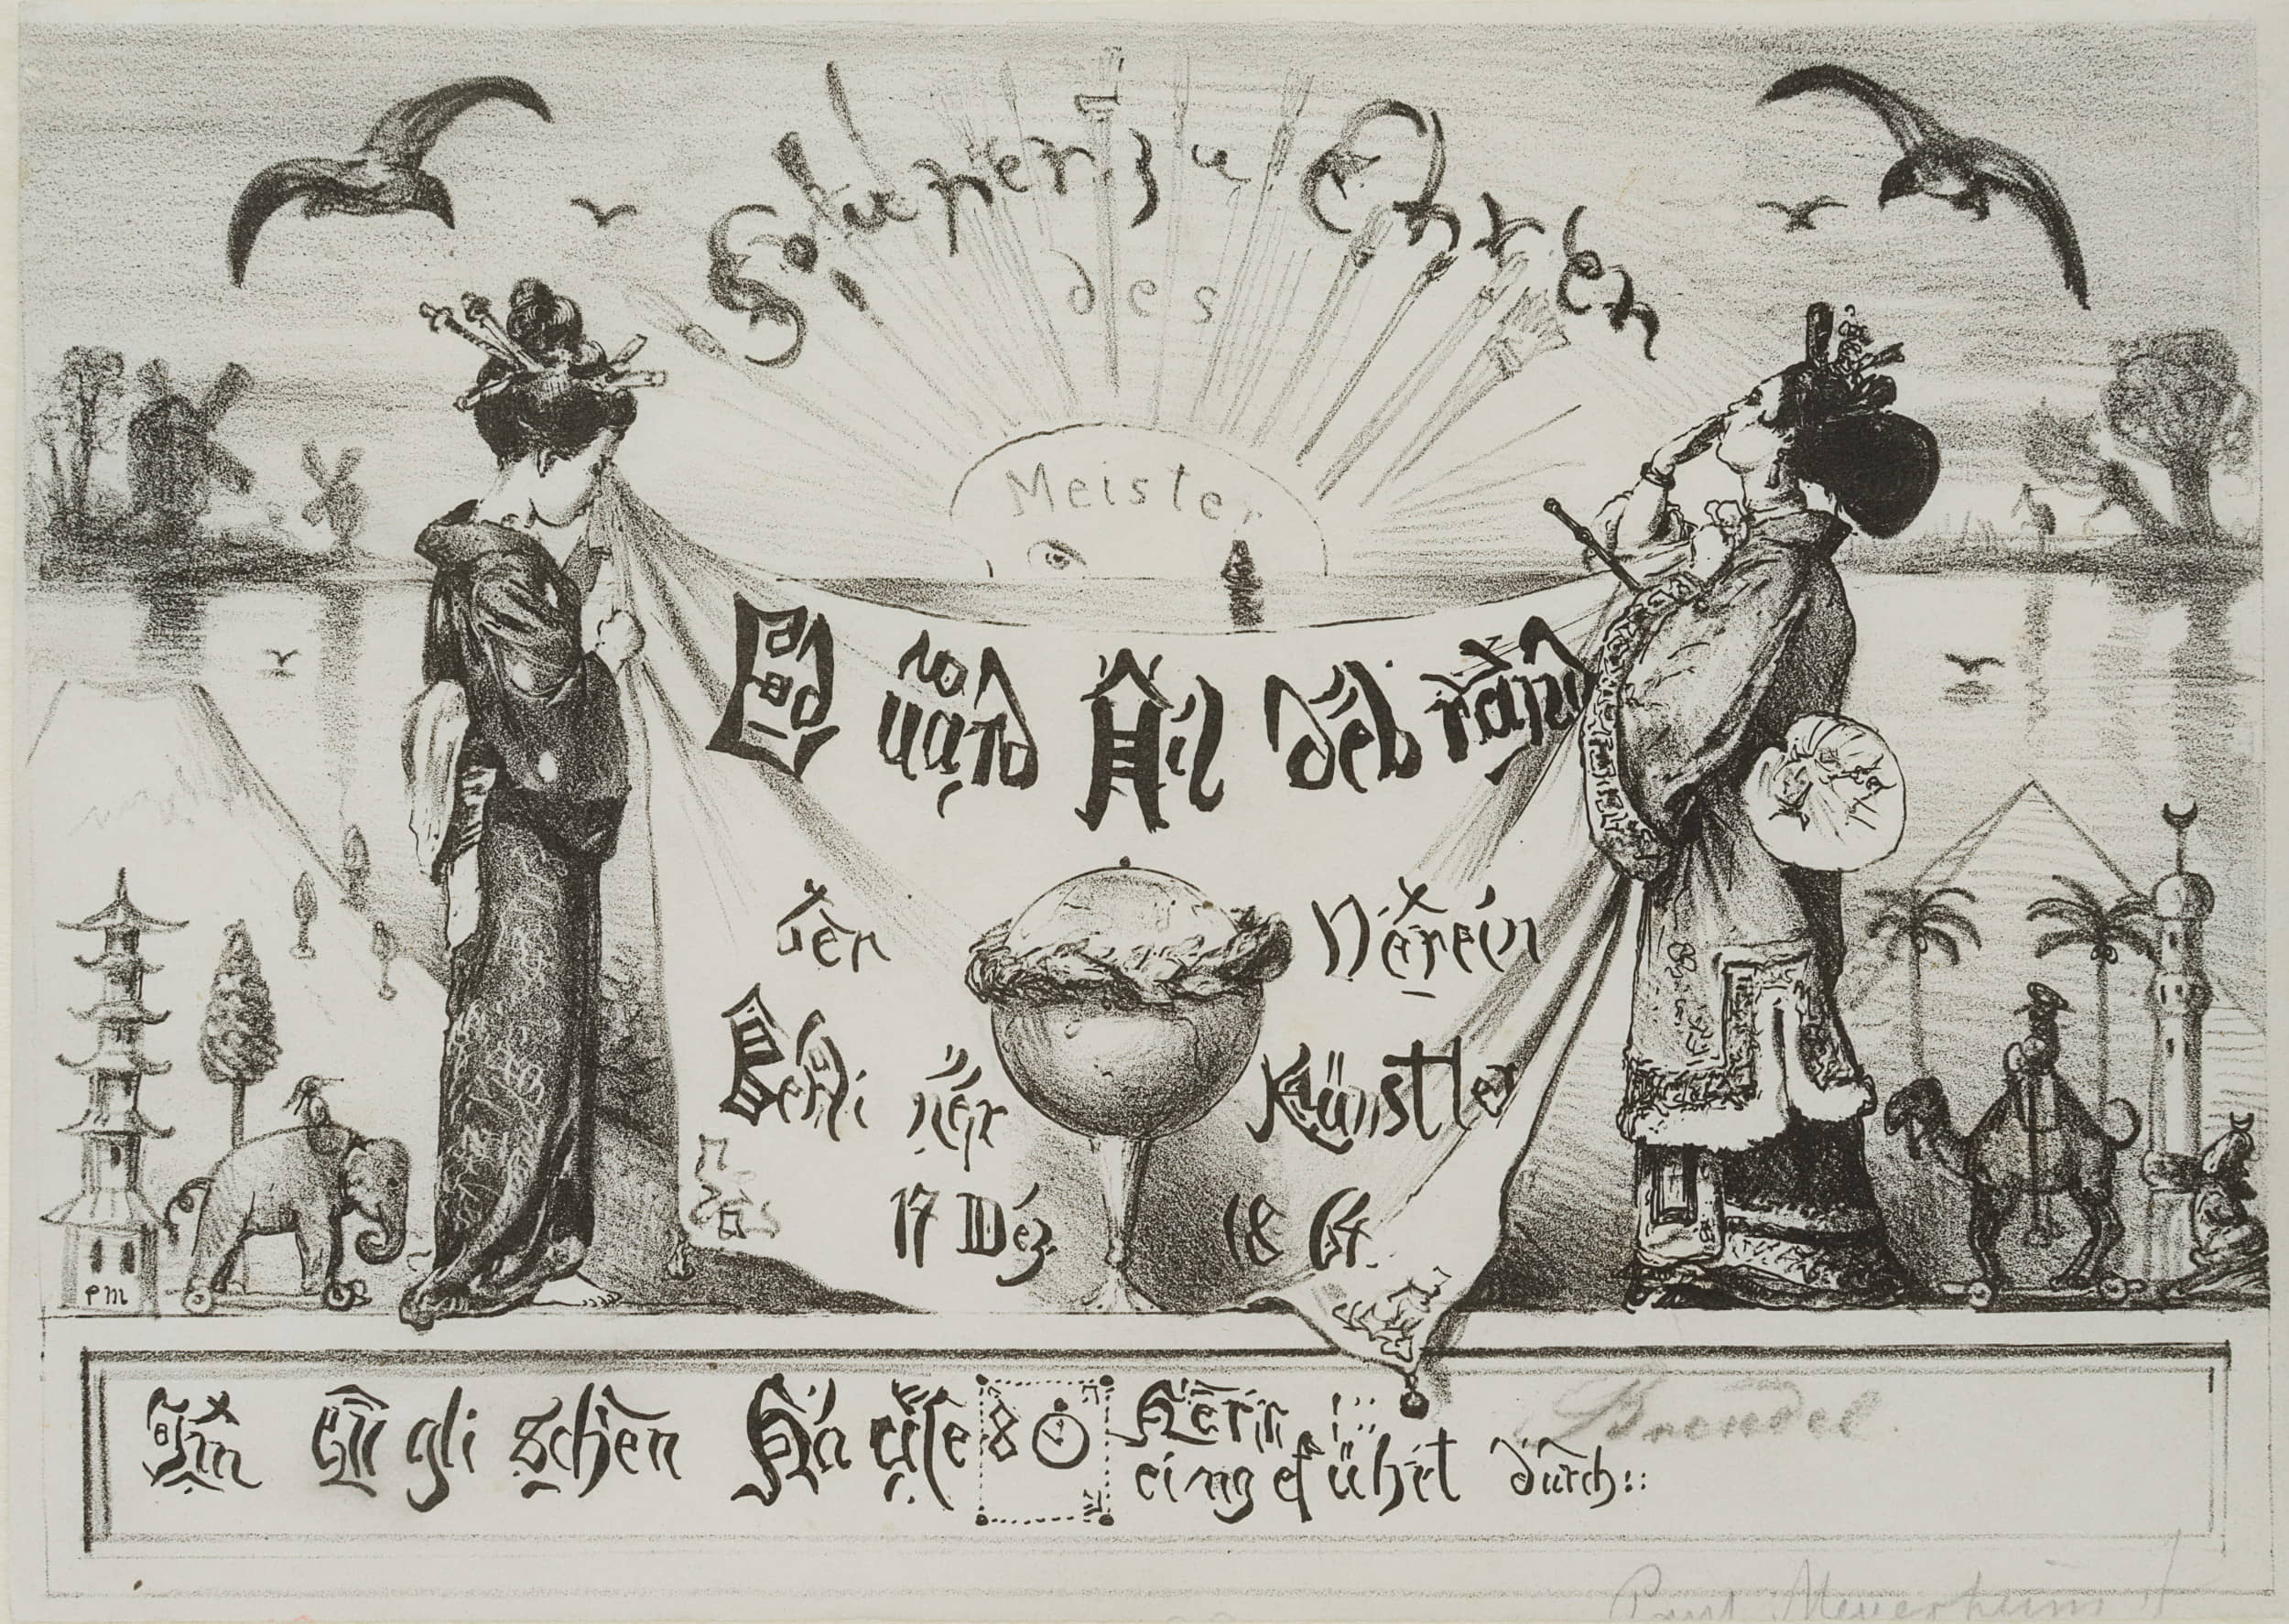 Souper zu Ehren
des
Meister
Eduard Hildebrand
der Verein
Berliner Künstler
17 Dez. 1864.
Im Englischen Hause 8
Herrn
Brendel.
eingeführt durch::
PM
Paul Meyerheim